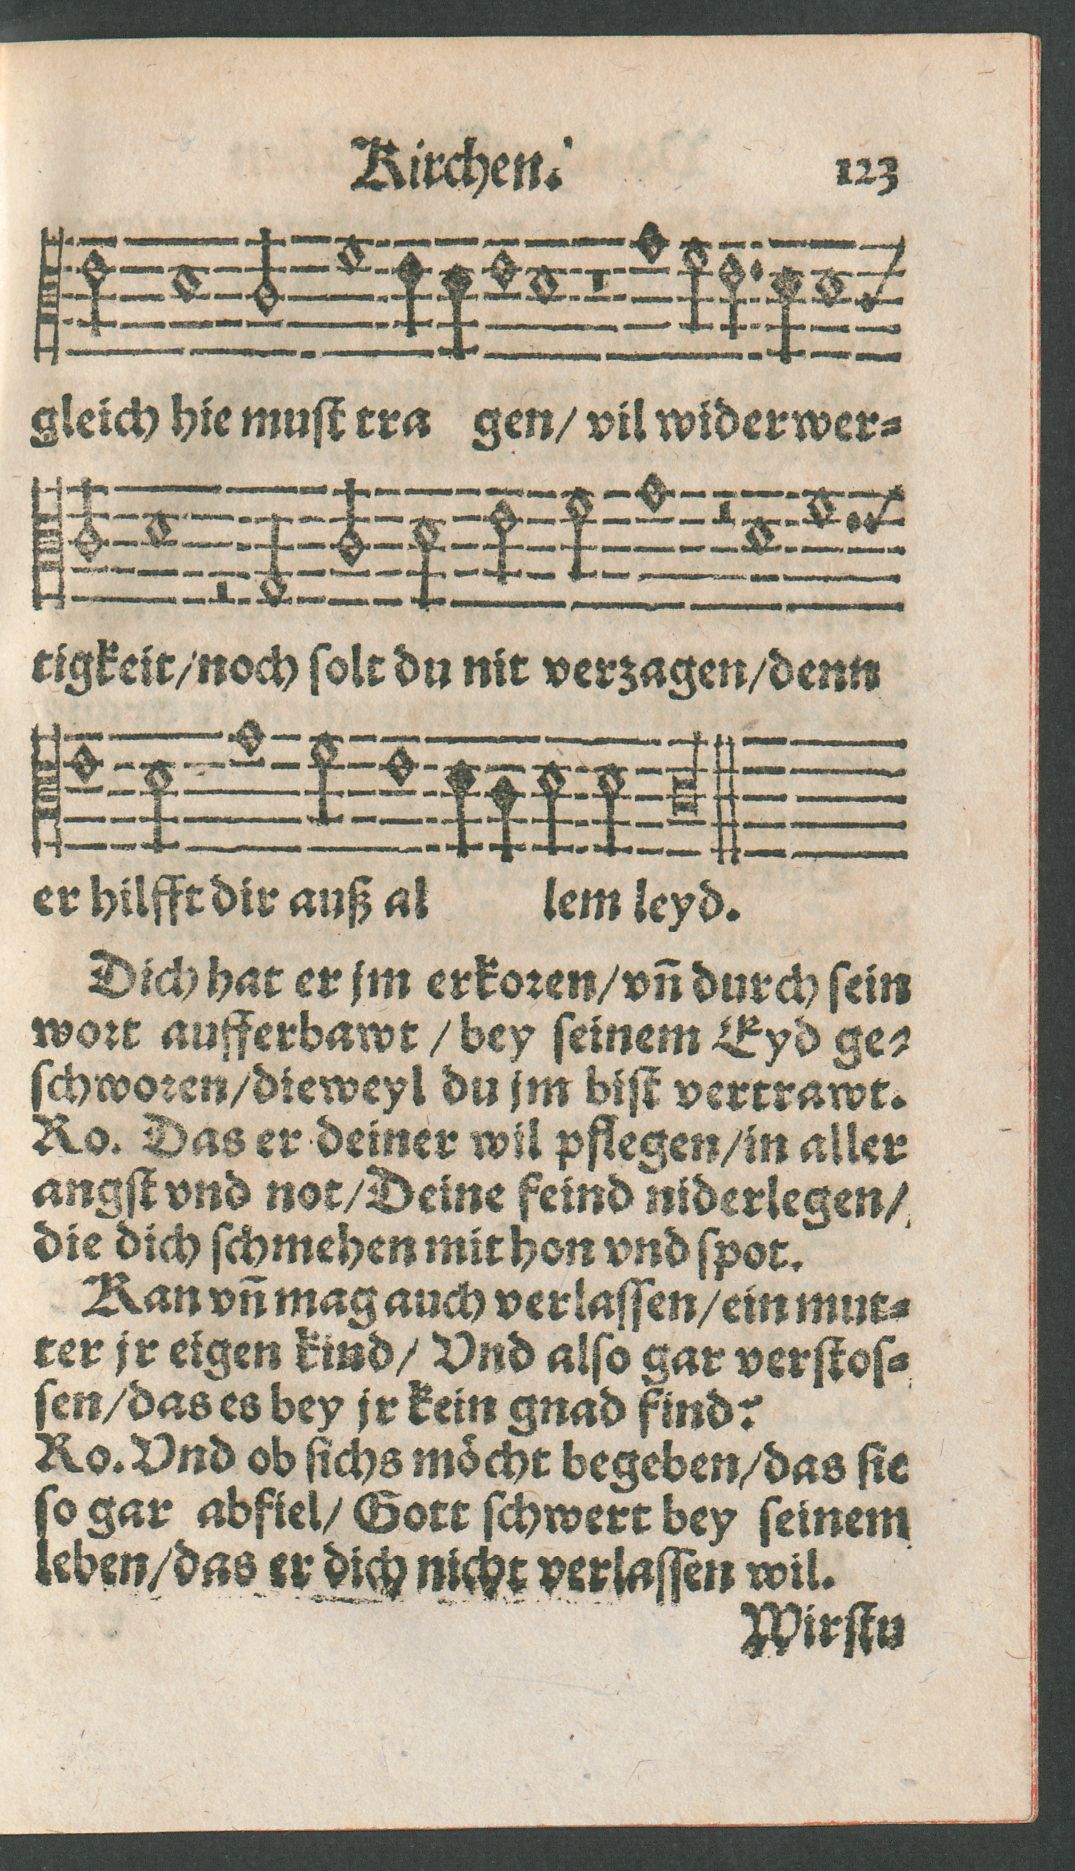 Kirchen. 123
gleich hie muſt tra gen/ vil widerwer⸗
tigkeit/noch ſolt du nit verzagen/denn
er hilfft dir auß al lem leyd.
Dich hat er jm erkoꝛen/vñ durch ſein
woꝛt aufferbawt / bey ſeinem Eyd ge⸗
ſchwoꝛen/dieweyl du jm biſt vertrawt.
Ro. Das er deiner wil pflegen/in aller
angſt vnd not/Deine feind niderlegen/
die dich ſchmehen mit hon vnd ſpot.
Kan vñ mag auch verlaſſen/ein mut⸗
ter jr eigen kind/ Vnd alſo gar verſtoſ⸗
ſen/das es bey jr kein gnad find?
Ro. Vnd ob ſichs möcht begeben/das ſie
ſo gar abfiel/ Gott ſchwert bey ſeinem
leben/das er dich nicht verlaſſen wil.
Wirſtu